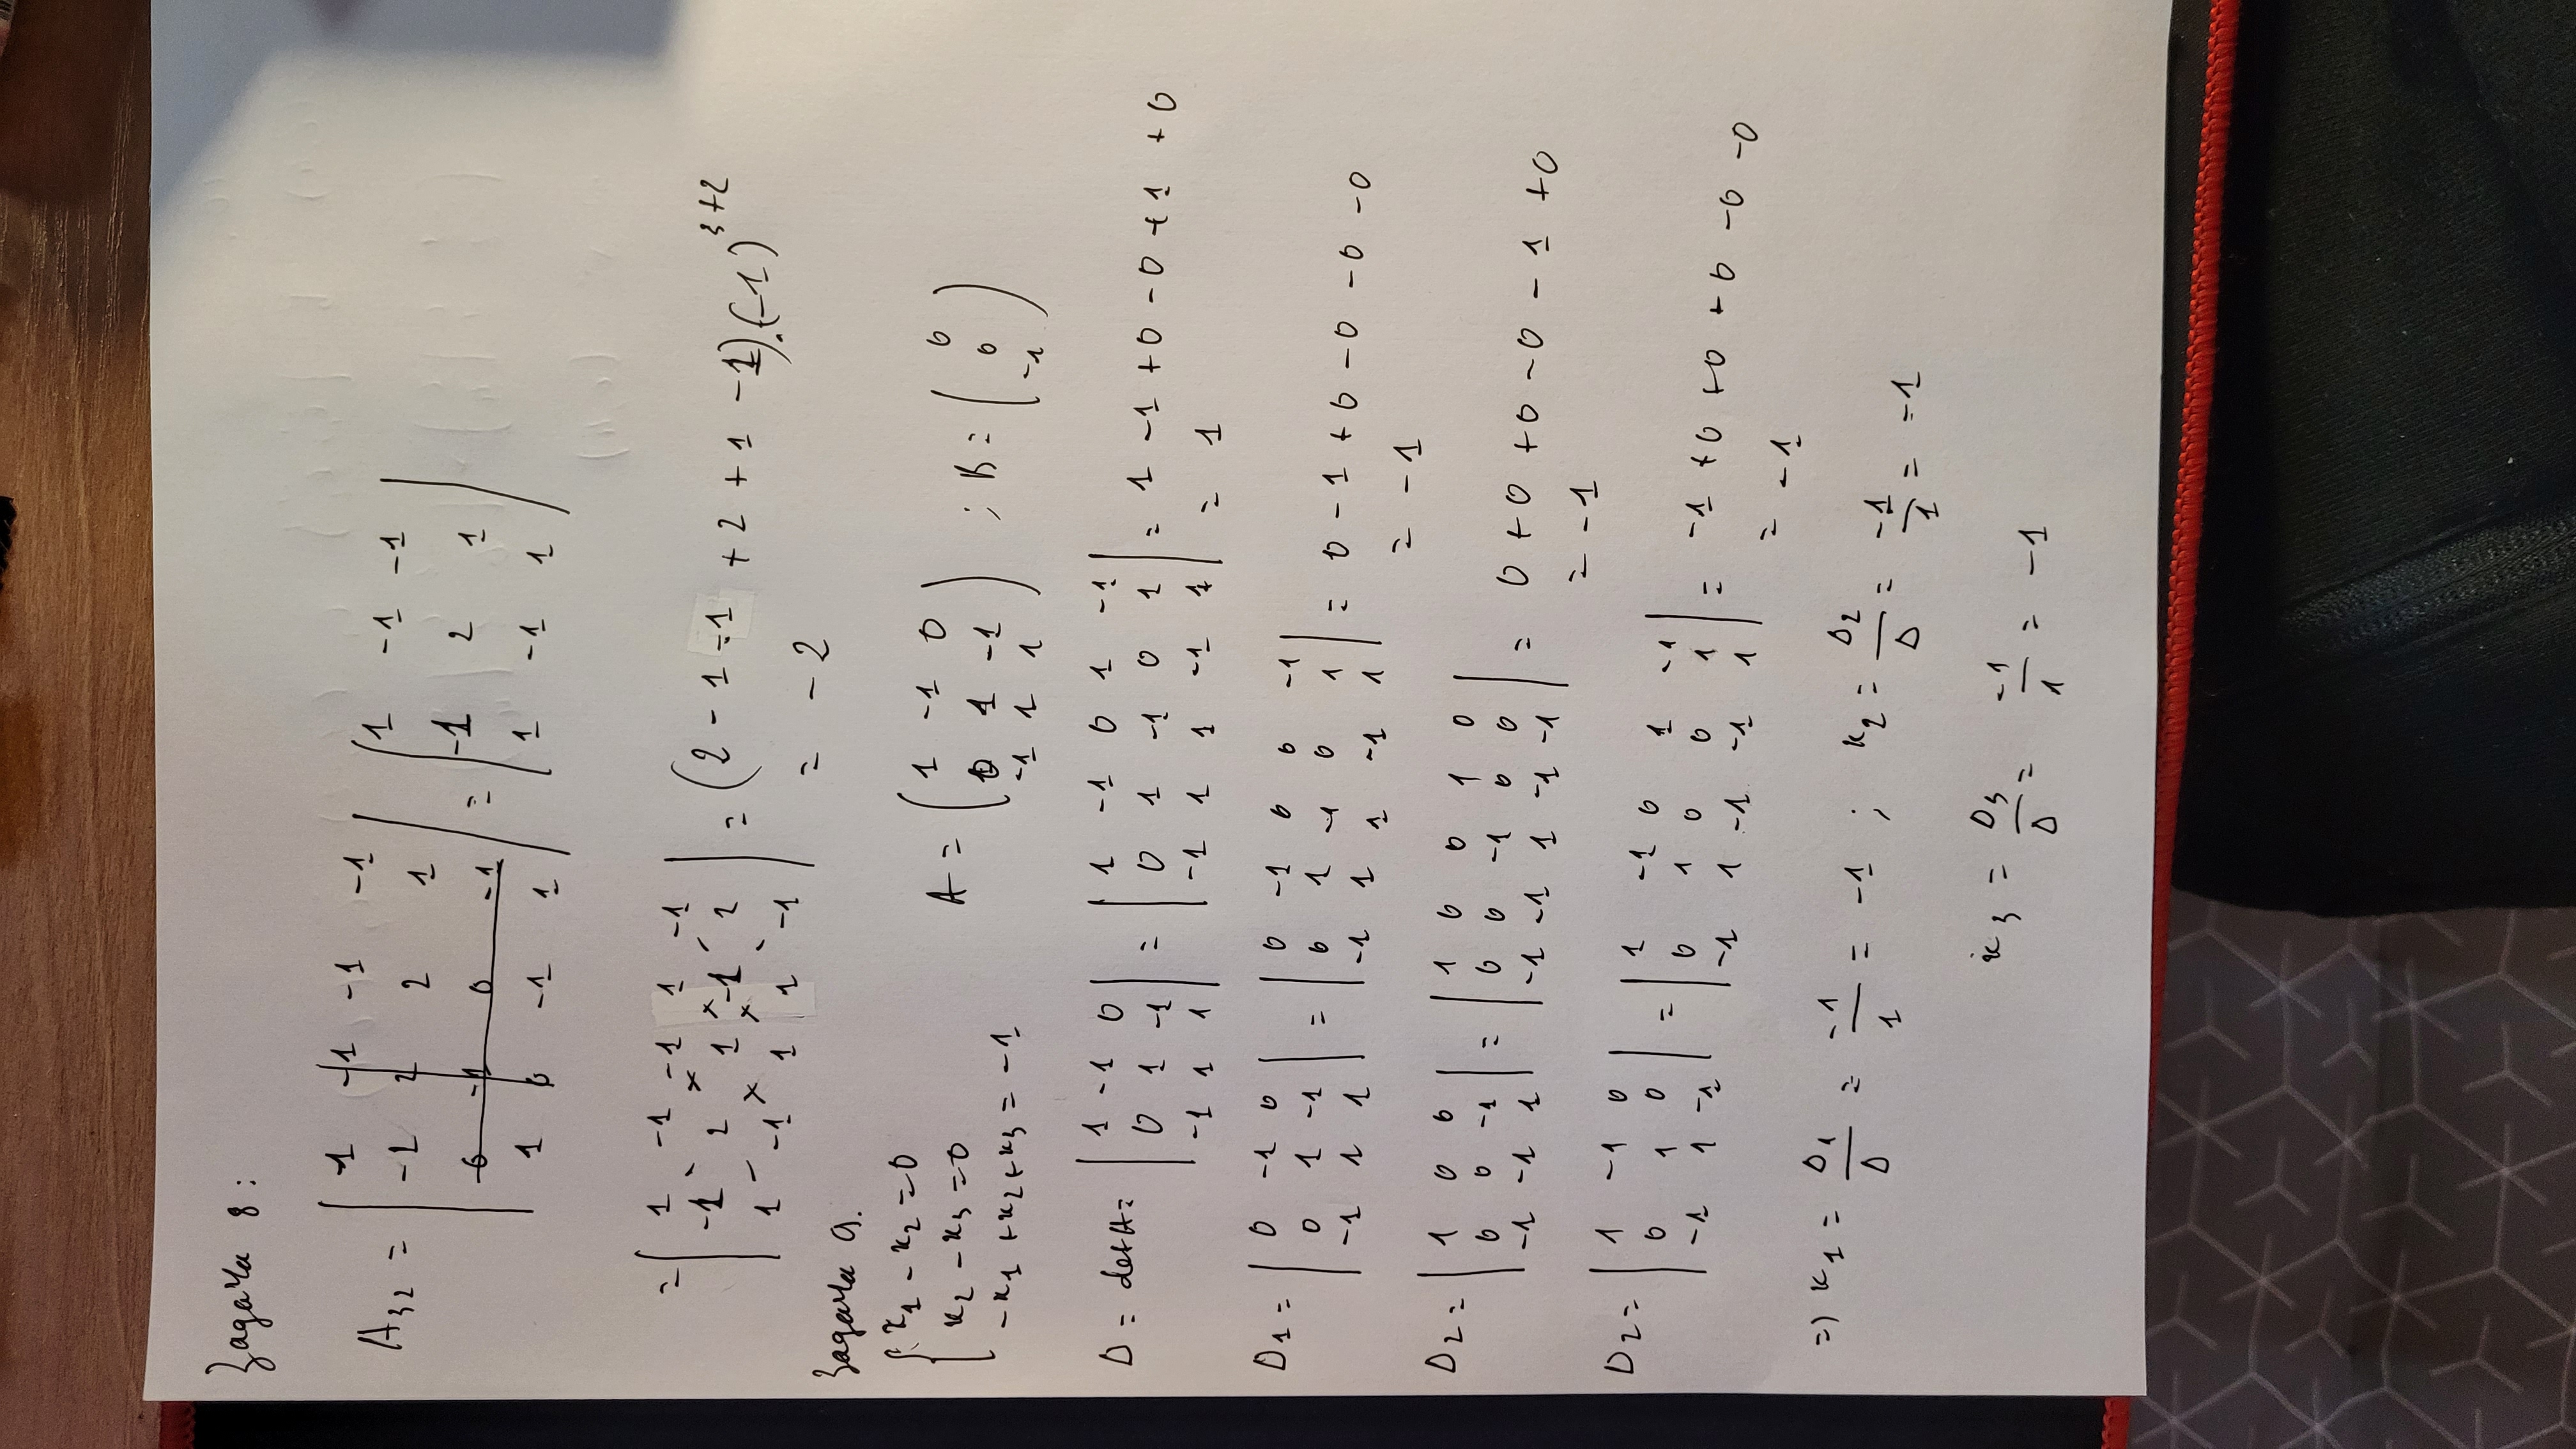 Задача 8:
A₃₂ = | 1 -1 -1 -1
-2 2 2 1
0 -1 0 -1
1 0 -1 1 | = | 1 -1 -1
-1 2 1
1 -1 1 |
= | 1 -1 -1 1 -1
-1 2 1 -1 2
1 -1 1 1 -1 | = (2 - 1 - 1 + 2 + 1 - 1).(-1)³⁺²
= -2
Задача 9.
{ x₁ - x₂ = 0
x₂ - x₃ = 0
-x₁ + x₂ + x₃ = -1
A = ( 1 -1 0
0 1 -1
-1 1 1 ) ; B = ( 0
0
-1 )
D = det A = | 1 -1 0
0 1 -1
-1 1 1 | = | 1 -1 0 1 -1
0 1 -1 0 1
-1 1 1 -1 1 | = 1 - 1 + 0 - 0 + 1 + 0
= 1
D₁ = | 0 -1 0
0 1 -1
-1 1 1 | = | 0 -1 0 0 -1
0 1 -1 0 1
-1 1 1 -1 1 | = 0 - 1 + 0 - 0 - 0 - 0
= -1
D₂ = | 1 0 0
0 0 -1
-1 -1 1 | = | 1 0 0 1 0
0 0 -1 0 0
-1 -1 1 -1 -1 | = 0 + 0 + 0 - 0 - 1 + 0
= -1
D₂ = | 1 -1 0
0 1 0
-1 1 -1 | = | 1 -1 0 1 -1
0 1 0 0 1
-1 1 -1 -1 1 | = -1 + 0 + 0 + 0 - 0 - 0
= -1
=) x₁ = D₁/D = -1/1 = -1 ; x₂ = D₂/D = -1/1 = -1
x₃ = D₃/D = -1/1 = -1